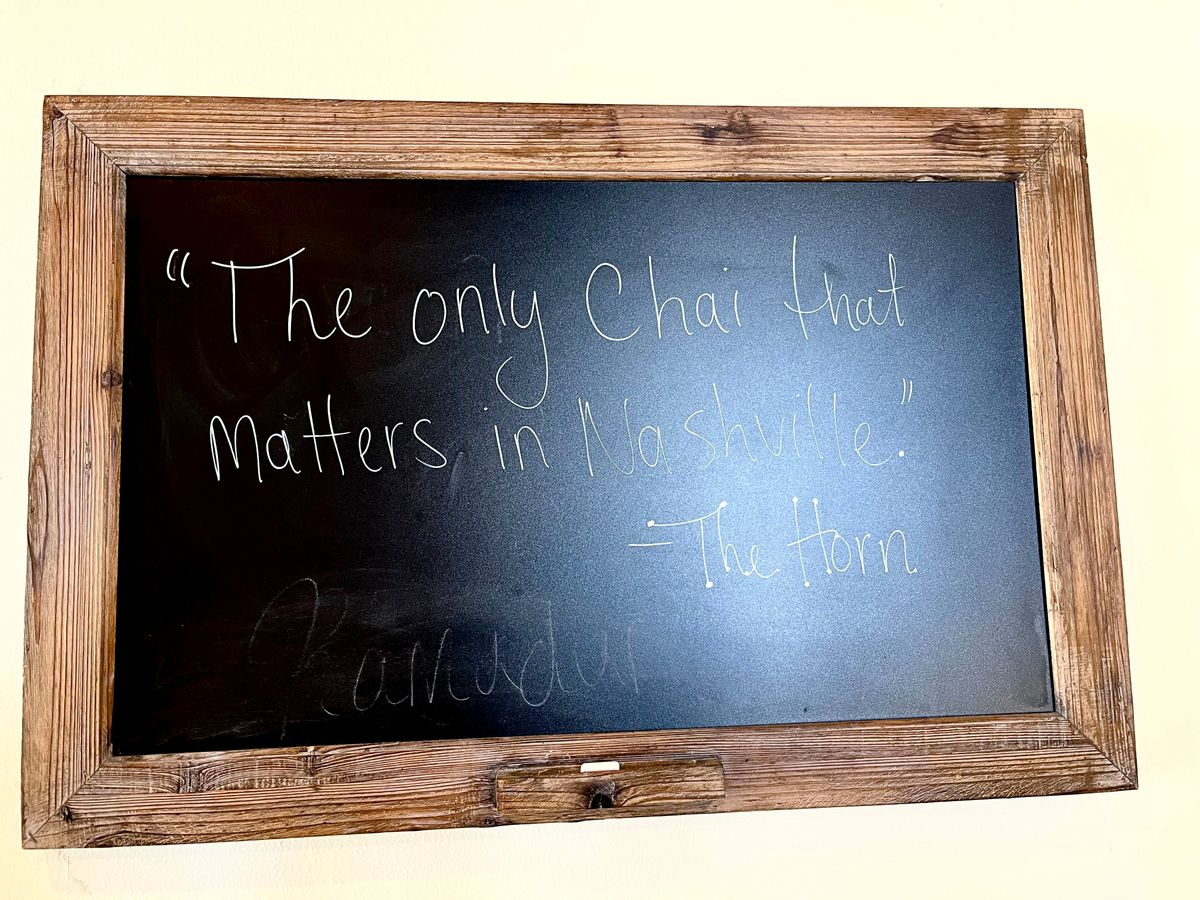 “The only Chai that
matters in Nashville.”
-The Horn